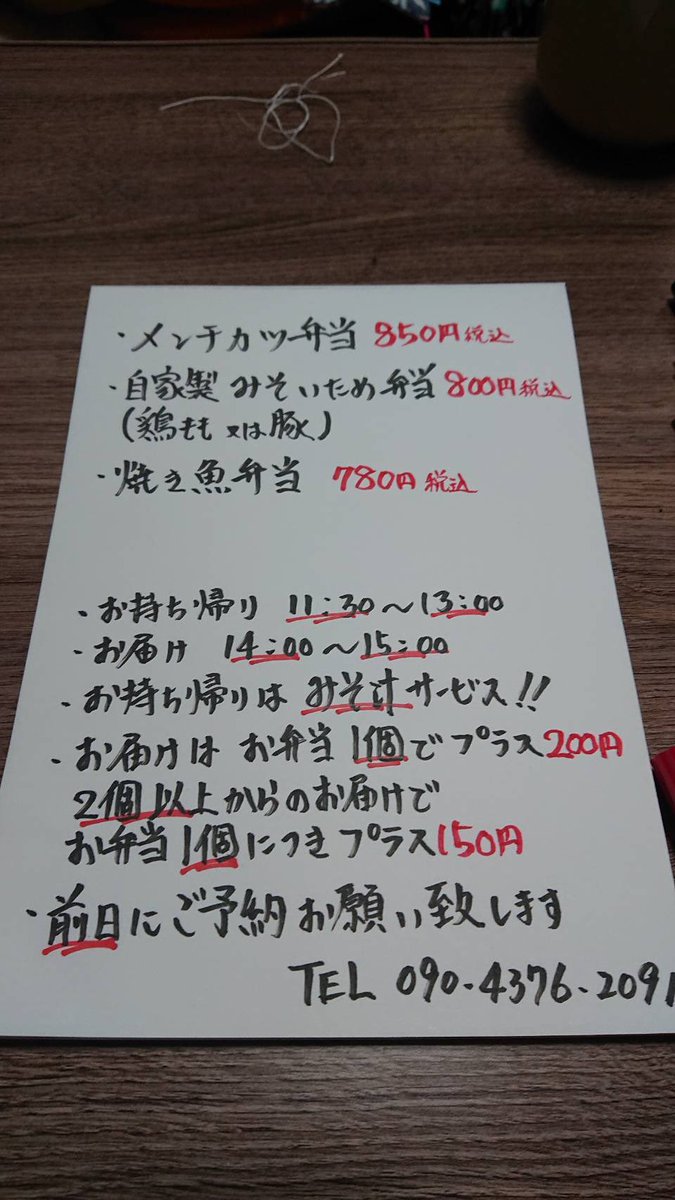 ・メンチカツ弁当 850円税込
・自家製みそいため弁当 800円税込
(鶏もも又は豚)
・焼き魚弁当 780円税込
・お持ち帰り 11:30〜13:00
・お届け 14:00〜15:00
・お持ち帰りは みそ汁サービス!!
・お届けは お弁当1個でプラス200円
2個以上からのお届けで
お弁当1個につきプラス150円
・前日にご予約お願い致します
TEL 090-4376-2091